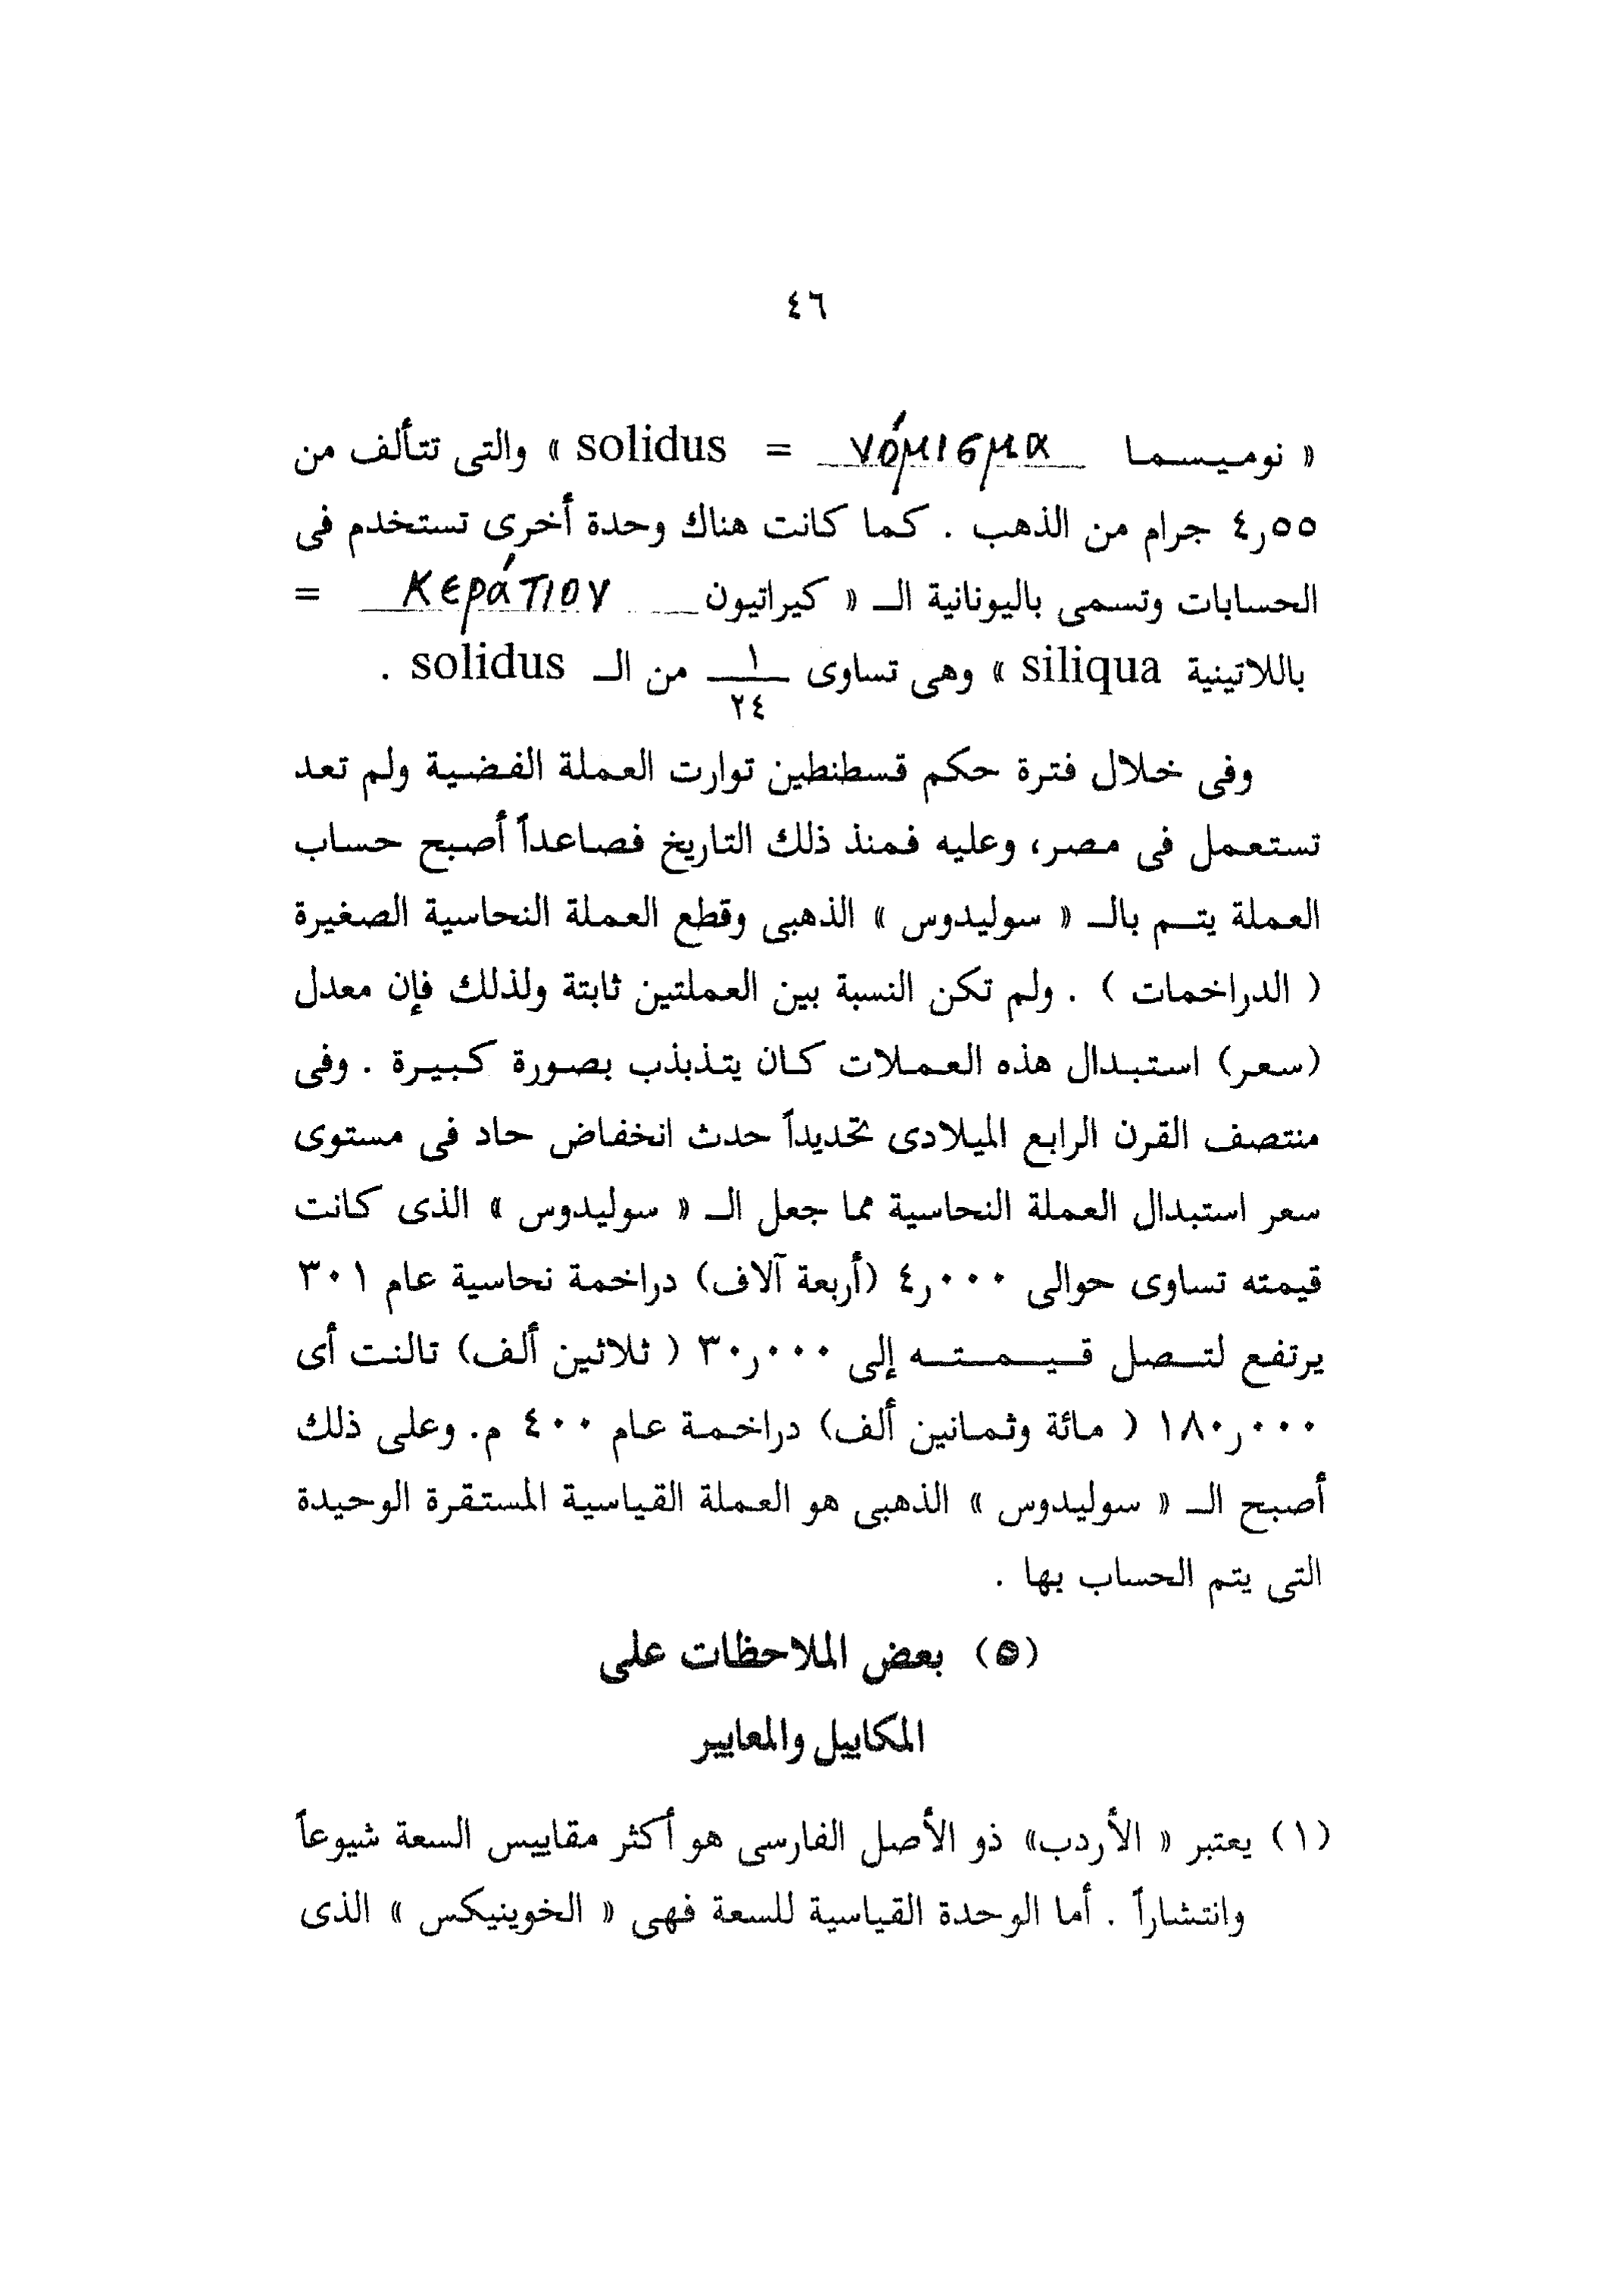 ٤٦
« نوميسما νόμισμα = solidus » والتى تتألف من
٤ر٥٥ جرام من الذهب . كما كانت هناك وحدة أخرى تستخدم فى
الحسابات وتسمى باليونانية الـ « كيراتيون κεράτιον =
باللاتينية siliqua » وهى تساوى ١/٢٤ من الـ solidus .
وفى خلال فترة حكم قسطنطين توارت العملة الفضية ولم تعد
تستعمل فى مصر، وعليه فمنذ ذلك التاريخ فصاعداً أصبح حساب
العملة يتم بالـ « سوليدوس » الذهبى وقطع العملة النحاسية الصغيرة
( الدراخمات ) . ولم تكن النسبة بين العملتين ثابتة ولذلك فإن معدل
(سعر) استبدال هذه العملات كان يتذبذب بصورة كبيرة . وفى
منتصف القرن الرابع الميلادى تحديداً حدث انخفاض حاد فى مستوى
سعر استبدال العملة النحاسية مما جعل الـ « سوليدوس » الذى كانت
قيمته تساوى حوالى ٤ر٠٠٠ (أربعة آلاف) دراخمة نحاسية عام ٣٠١
يرتفع لتصل قيمته إلى ٣٠ر٠٠٠ ( ثلاثين ألف) تالنت أى
١٨٠ر٠٠٠ ( مائة وثمانين ألف) دراخمة عام ٤٠٠ م. وعلى ذلك
أصبح الـ « سوليدوس » الذهبى هو العملة القياسية المستقرة الوحيدة
التى يتم الحساب بها .
(٥) بعض الملاحظات على
المكاييل والمعايير
(١) يعتبر « الأردب» ذو الأصل الفارسى هو أكثر مقاييس السعة شيوعاً
وانتشاراً . أما الوحدة القياسية للسعة فهى « الخوينيكس » الذى